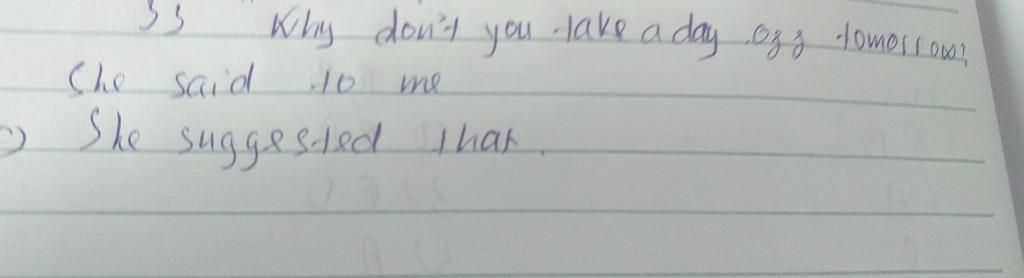 33 Why don't you take a day off tomorrow?
She said to me
=> She suggested that.